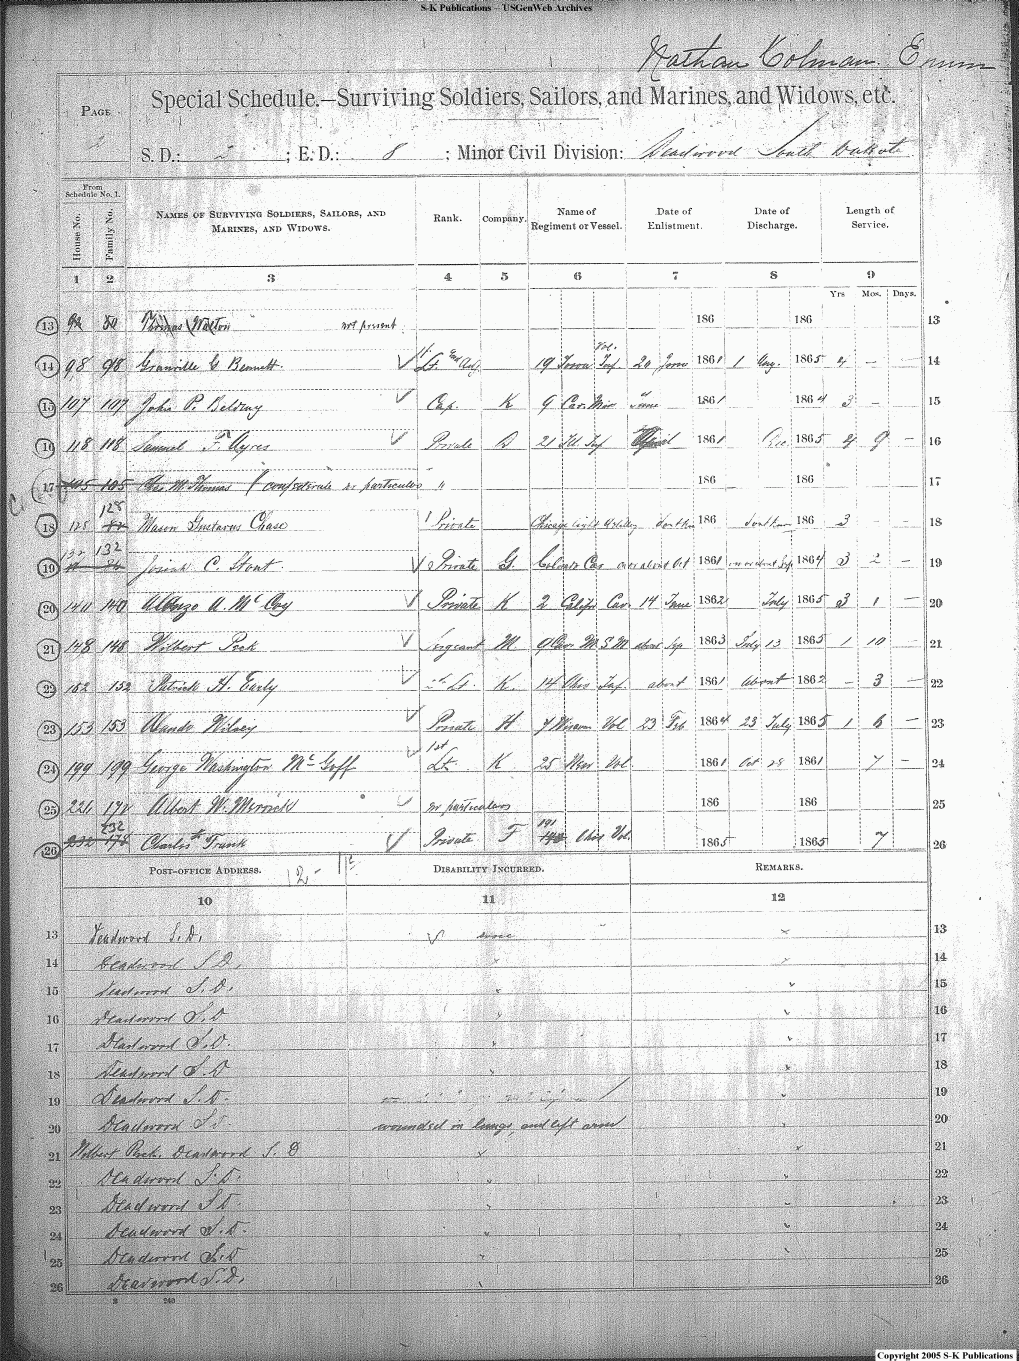 S-K Publications – USGenWeb Archives
Nathan Colman Enum
Page 2
Special Schedule.—Surviving Soldiers, Sailors, and Marines, and Widows, etc.
S. D.: 2 ; E. D.: 8 ; Minor Civil Division: Deadwood South Dakota
From Schedule No. 1.
House No. Family No. Names of Surviving Soldiers, Sailors, and Marines, and Widows. Rank. Company. Name of Regiment or Vessel. Date of Enlistment. Date of Discharge. Length of Service.
1 2 3 4 5 6 7 8 9
Yrs Mos. Days.
13 Thomas Walton not present 186 186 13
14 98 98 Granville G Bennett. Lt. Adj. 19 Iowa Vol. Inf. 20 1861 1 Aug. 1865 4 – 14
15 107 107 John P. Belding Cap. K 9 Cav. Mis June 1861 1864 3 – 15
16 118 118 Samuel F. Ayres Private 21 Ill Inf 1861 1865 4 9 – 16
17 105 105 M. Thomas (confederate no particulars " 186 186 17
18 128 128 Mason Gustavus Chase Private Chicago light Artillery dont kn 186 dont kn 186 3 – – 18
19 132 132 Josiah C. Stout. Private G. Colorado Cav on or about Oct 1861 on or about Sep 1864 3 2 – 19
20 140 140 Alonzo A. Mc Coy Private K 2 Califor Cav. 14 June 1862 July 1865 3 1 – 20
21 148 148 Wolbert Peck Sergeant M 9 Cav. M.S.M about Sep 1863 July 13 1865 1 10 – 21
22 152 152 Patrick H. Early Lt. K. 14 Ohio Inf. about 1861 about 1862 – 3 – 22
23 153 153 Wilsey Private H 7 Vol 23 Feb 1864 23 July 1865 1 6 – 23
24 199 199 George Washington Mc Goff 1st Lt. K 25 Vol 1861 Oct 28 1861 7 – 24
25 Albert W. Merrick no particulars 186 186 25
26 232 Charles Frank Private F 191 Ohio Vol. 1865 1865 7 26
Post-Office Address. Disability Incurred. Remarks.
10 11 12
13 Deadwood S.D. none 13
14 Deadwood S D. 14
15 Deadwood S.D. 15
16 Deadwood S.D 16
17 Deadwood S.D. 17
18 Deadwood S.D 18
19 Deadwood S.D. 19
20 Deadwood S.D. wounded in lungs, and left arm 20
21 Wolbert Peck. Deadwood S. D 21
22 Deadwood S.D. 22
23 Deadwood S D. 23
24 Deadwood S.D. 24
25 Deadwood S.D 25
26 Deadwood S.D. 26
Copyright 2005 S-K Publications